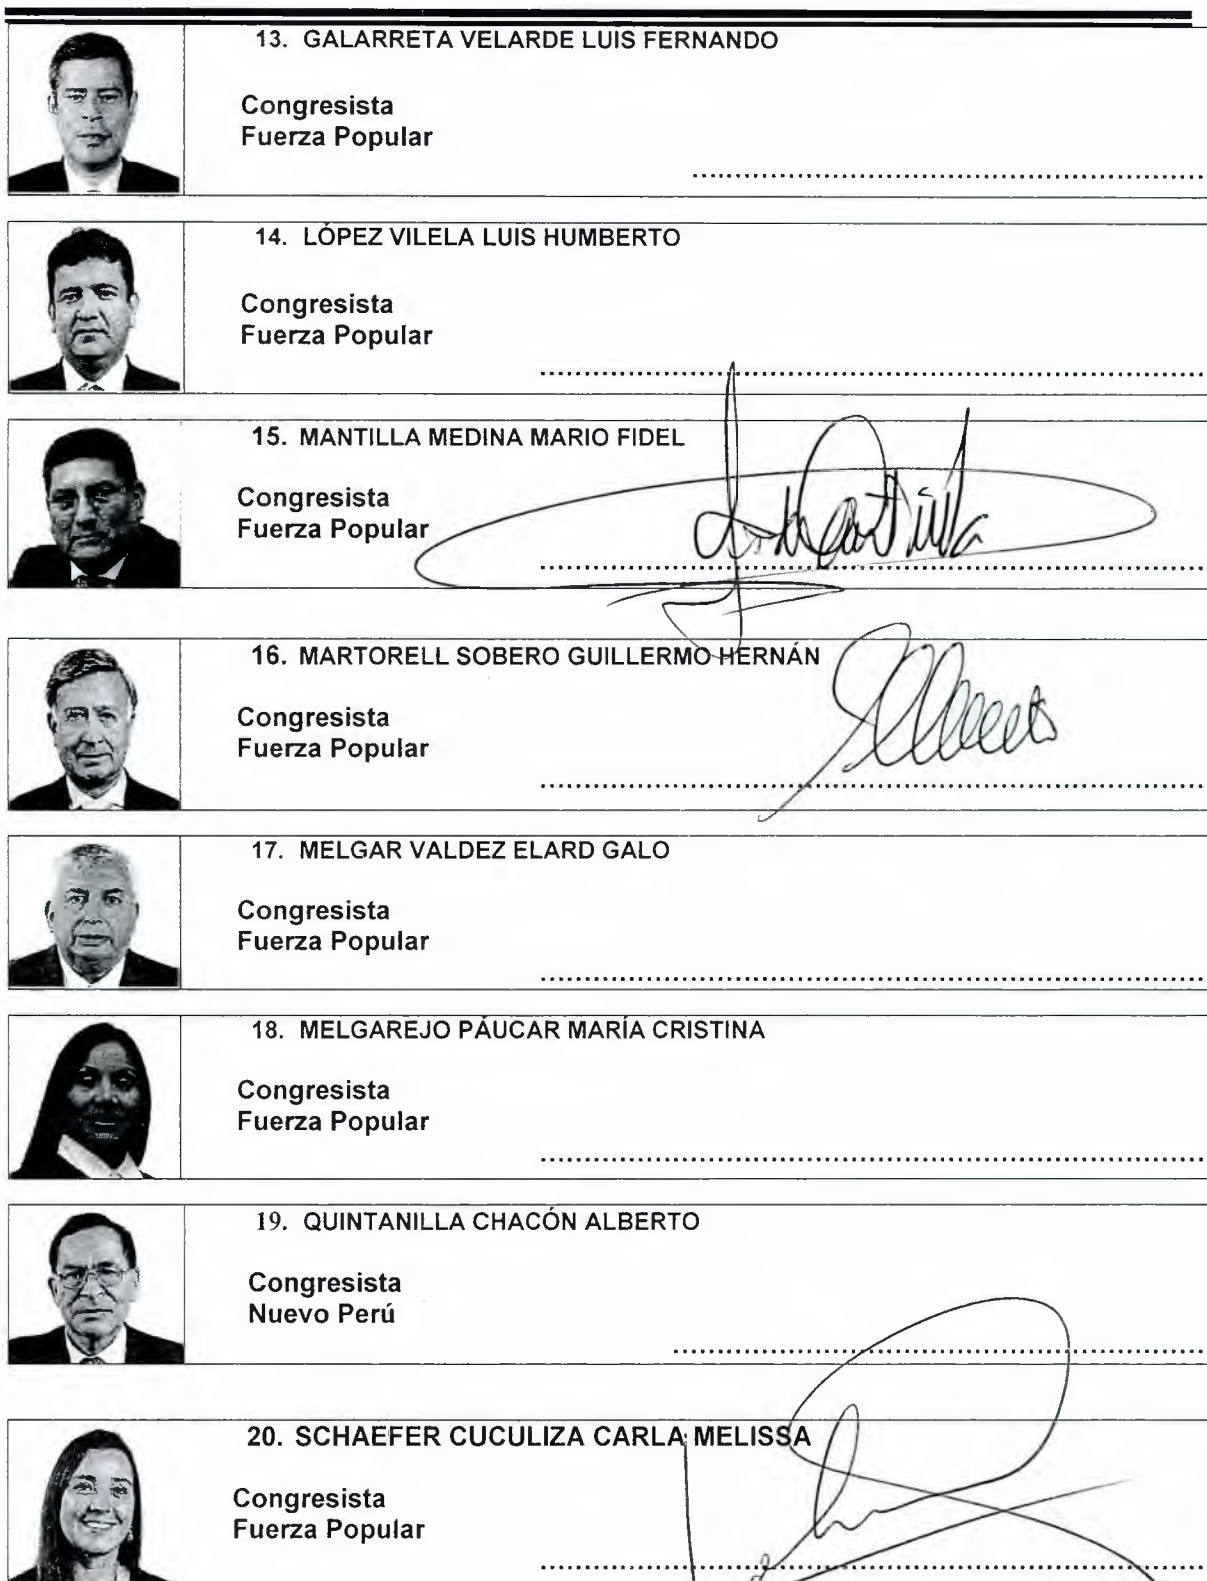 13. GALARRETA VELARDE LUIS FERNANDO
Congresista
Fuerza Popular
14. LÓPEZ VILELA LUIS HUMBERTO
Congresista
Fuerza Popular
15. MANTILLA MEDINA MARIO FIDEL
Congresista
Fuerza Popular
16. MARTORELL SOBERO GUILLERMO HERNÁN
Congresista
Fuerza Popular
17. MELGAR VALDEZ ELARD GALO
Congresista
Fuerza Popular
18. MELGAREJO PÁUCAR MARÍA CRISTINA
Congresista
Fuerza Popular
19. QUINTANILLA CHACÓN ALBERTO
Congresista
Nuevo Perú
20. SCHAEFER CUCULIZA CARLA MELISSA
Congresista
Fuerza Popular